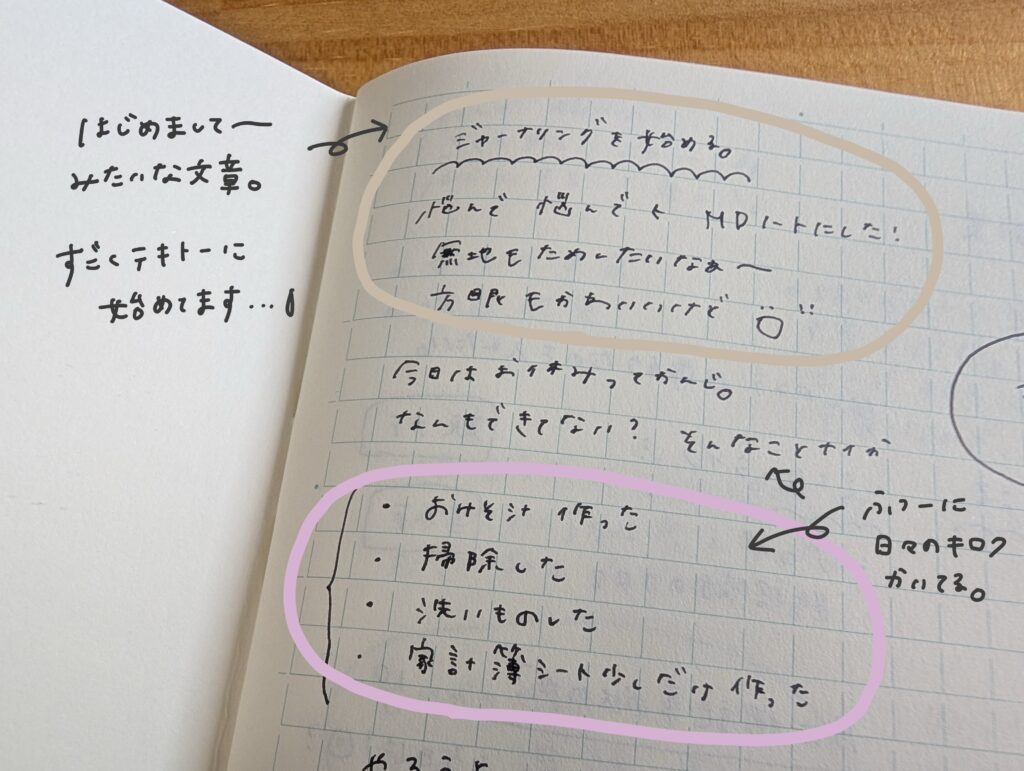 はじめまして〜
みたいな文章。
すごくテキトーに
始めてます…!
ジャーナリングを始める。
悩んで悩んで MDノートにした!
無地もためしたいなぁ〜
方眼もかわいいけど
今日はお休みってかんじ。
なんもできてない? そんなことナイか
・おみそ汁作った
・掃除した
・洗いものした
・家計簿シート少しだけ作った
ふつーに
日々のキロク
かいてる。
やること